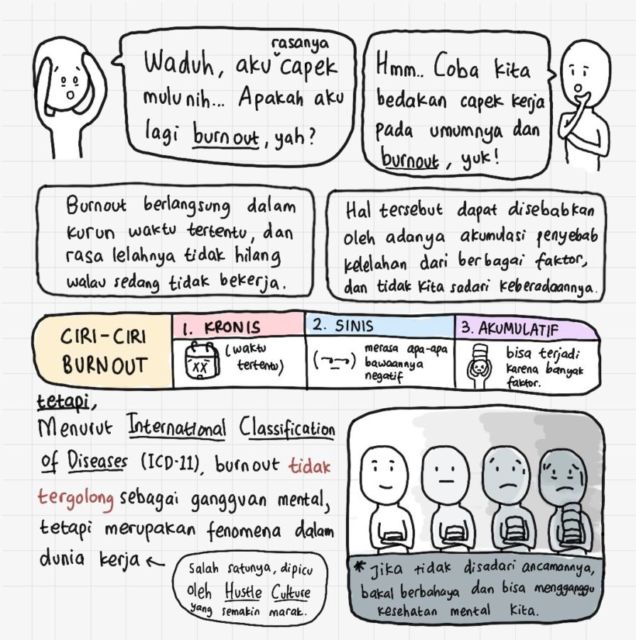 Waduh, aku rasanya capek
mulu nih... Apakah aku
lagi burnout, yah?
Hmm.. Coba kita
bedakan capek kerja
pada umumnya dan
burnout, yuk!
Burnout berlangsung dalam
kurun waktu tertentu, dan
rasa lelahnya tidak hilang
walau sedang tidak bekerja.
Hal tersebut dapat disebabkan
oleh adanya akumulasi penyebab
kelelahan dari berbagai faktor,
dan tidak kita sadari keberadaannya.
CIRI-CIRI
BURNOUT
1. KRONIS
(waktu
tertentu)
2. SINIS
merasa apa-apa
bawaannya
negatif
3. AKUMULATIF
bisa terjadi
karena banyak
faktor.
tetapi,
Menurut International Classification
of Diseases (ICD-11), burnout tidak
tergolong sebagai gangguan mental,
tetapi merupakan fenomena dalam
dunia kerja ←
Salah satunya, dipicu
oleh Hustle Culture
yang semakin marak.
* Jika tidak disadari ancamannya,
bakal berbahaya dan bisa mengganggu
kesehatan mental kita.